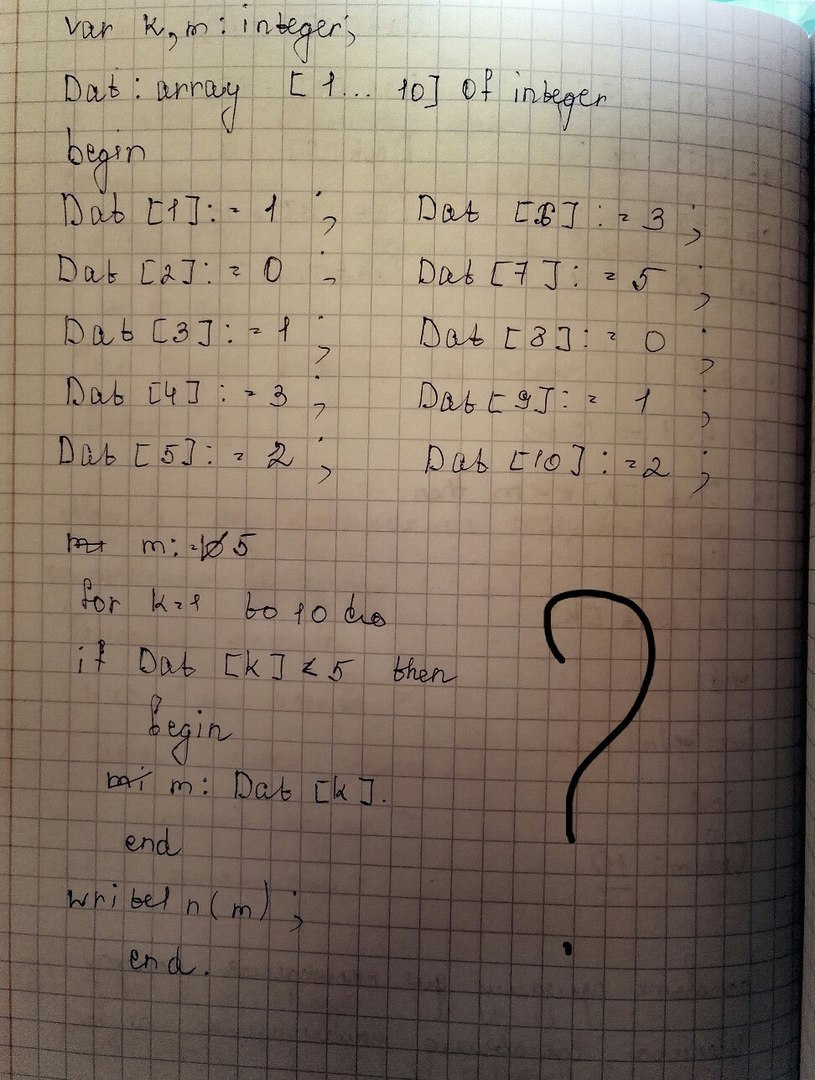 var k, m : integer;
Dat : array [1... 10] of integer
begin
Dat [1] := 1 ; Dat [6] := 3 ;
Dat [2] := 0 ; Dat [7] := 5 ;
Dat [3] := 1 ; Dat [8] := 0 ;
Dat [4] := 3 ; Dat [9] := 1 ;
Dat [5] := 2 ; Dat [10] := 2 ;
m := 5
for k=1 to 10 do
if Dat [k] < 5 then
begin
m : Dat [k].
end
writeln(m) ;
end.
?